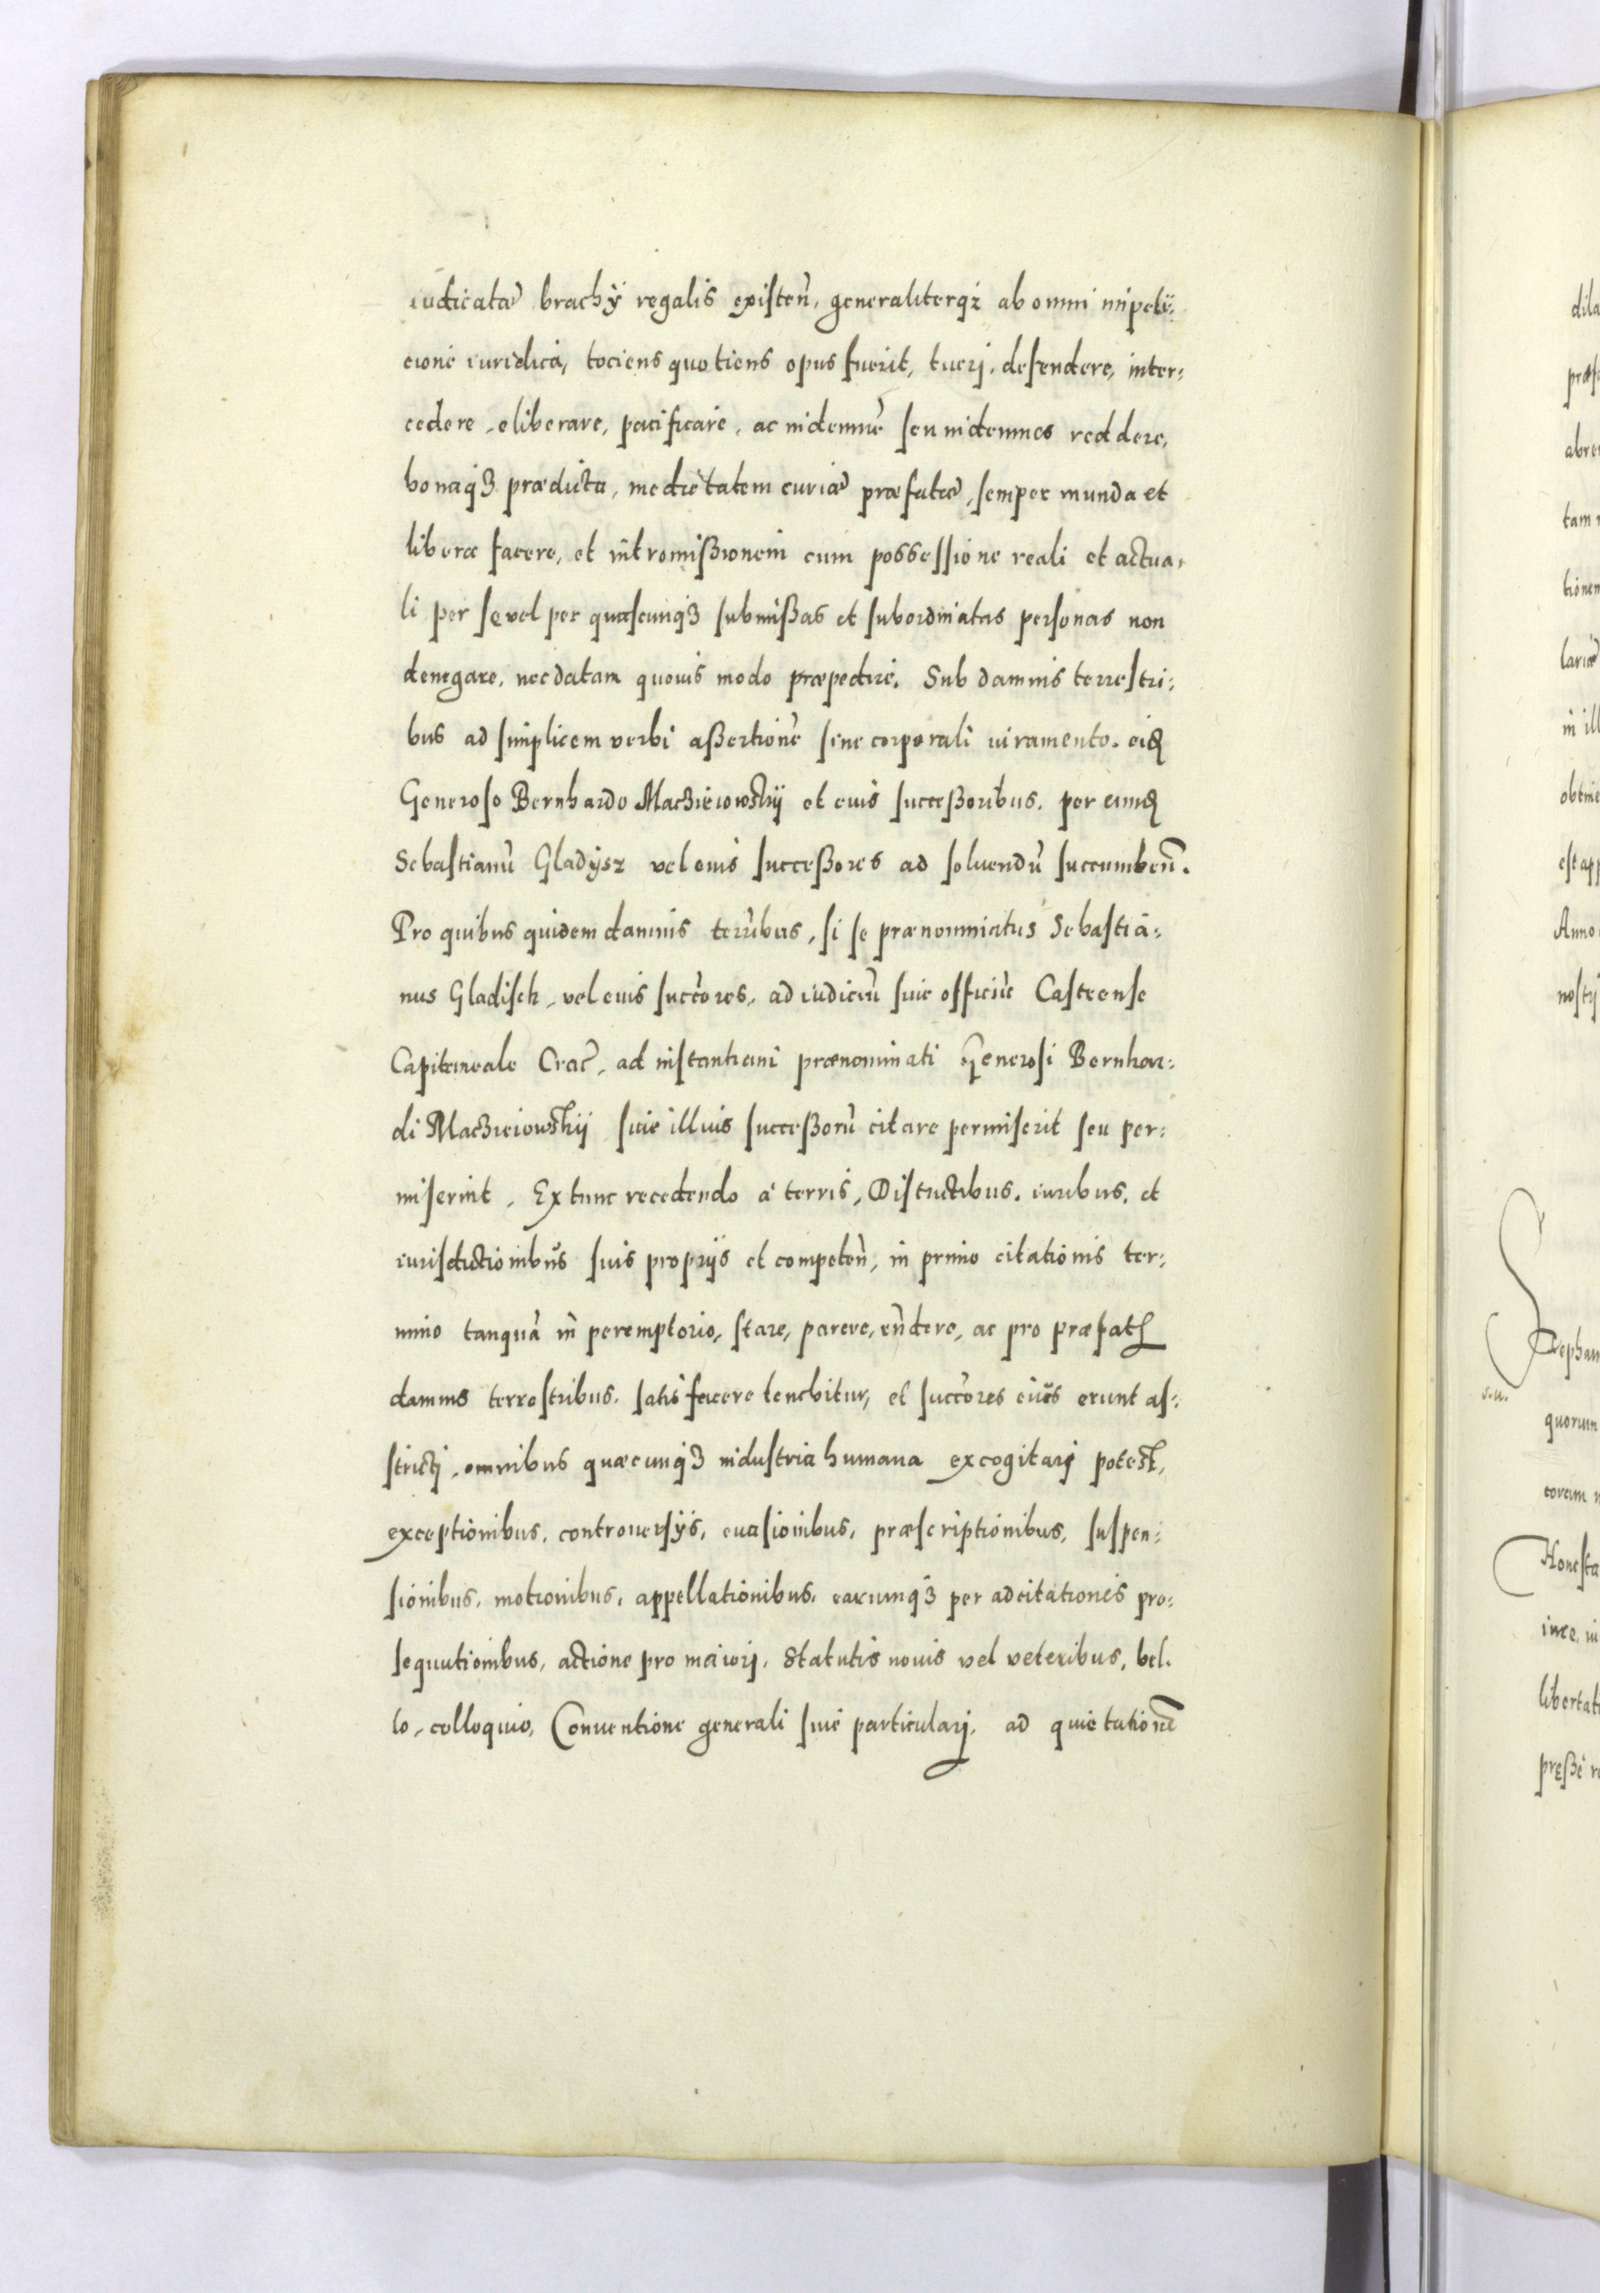 iudicatæ brachÿ regalis existeñ, generaliterq́ꝫ ab omni impeti-
cione iuridica, tociens quotiens opus fuerit, tuerj, defendere, inter-
cedere, eliberare, pacificare, ac indemnē seu indemnes reddere,
bonaq́ꝫ prædicta, medietatem curiæ præfatæ, semper munda et
libera facere, et intromißionem cum possessione reali et actua-
li per se vel per quascunq́ꝫ submißas et subordinatas personas non
denegare, nec datam quouis modo præpedire. Sub damnis terrestri-
bus ad simplicem verbi aßertionē sine corporali iuramento. eidē
Generoso Bernhardo Maczieiowskÿ et euis succeßoribus, per eundē
Sebastianū Gladÿsz vel euis succeßores ad soluendū succumbeñ.
Pro quibus quidem damnis terrībus, si se prænominatus Sebastia-
nus Gladisch, vel euis succōres, ad iudiciū siue officiū Castrense
Capitaneale Crac̄, ad instantiam prænominati Generosi Bernhar-
di Maczieiowskÿ siue illius succeßorū citare permiserit seu per-
miserint, Extunc recedendo à terris, Districtibus, iuribus, et
iurisdictionibus suis proprÿs et competeñ, in primo citationis ter-
mino tanquā in peremptorio, stare, parere, rñdere, ac pro præfatis
damnis terrestribus, satisfacere tenebitur, et succōres eius erunt as-
strictj, omnibus quæcunq́ꝫ industria humana excogitarj potest,
exceptionibus, controuersÿs, euasionibus, præscriptionibus, suspen-
sionibus, motionibus, appellationibus, earumq́ꝫ per adcitationes pro-
sequutionibus, actione pro maiorj, statutis nouis vel veteribus, bel-
lo, colloquio, Conuentione generali siue particularj, ad quietationē
dila
præf
abre
tam
tionem
in ill
est app
Anno
nostrj
quorum
coram
Honesta